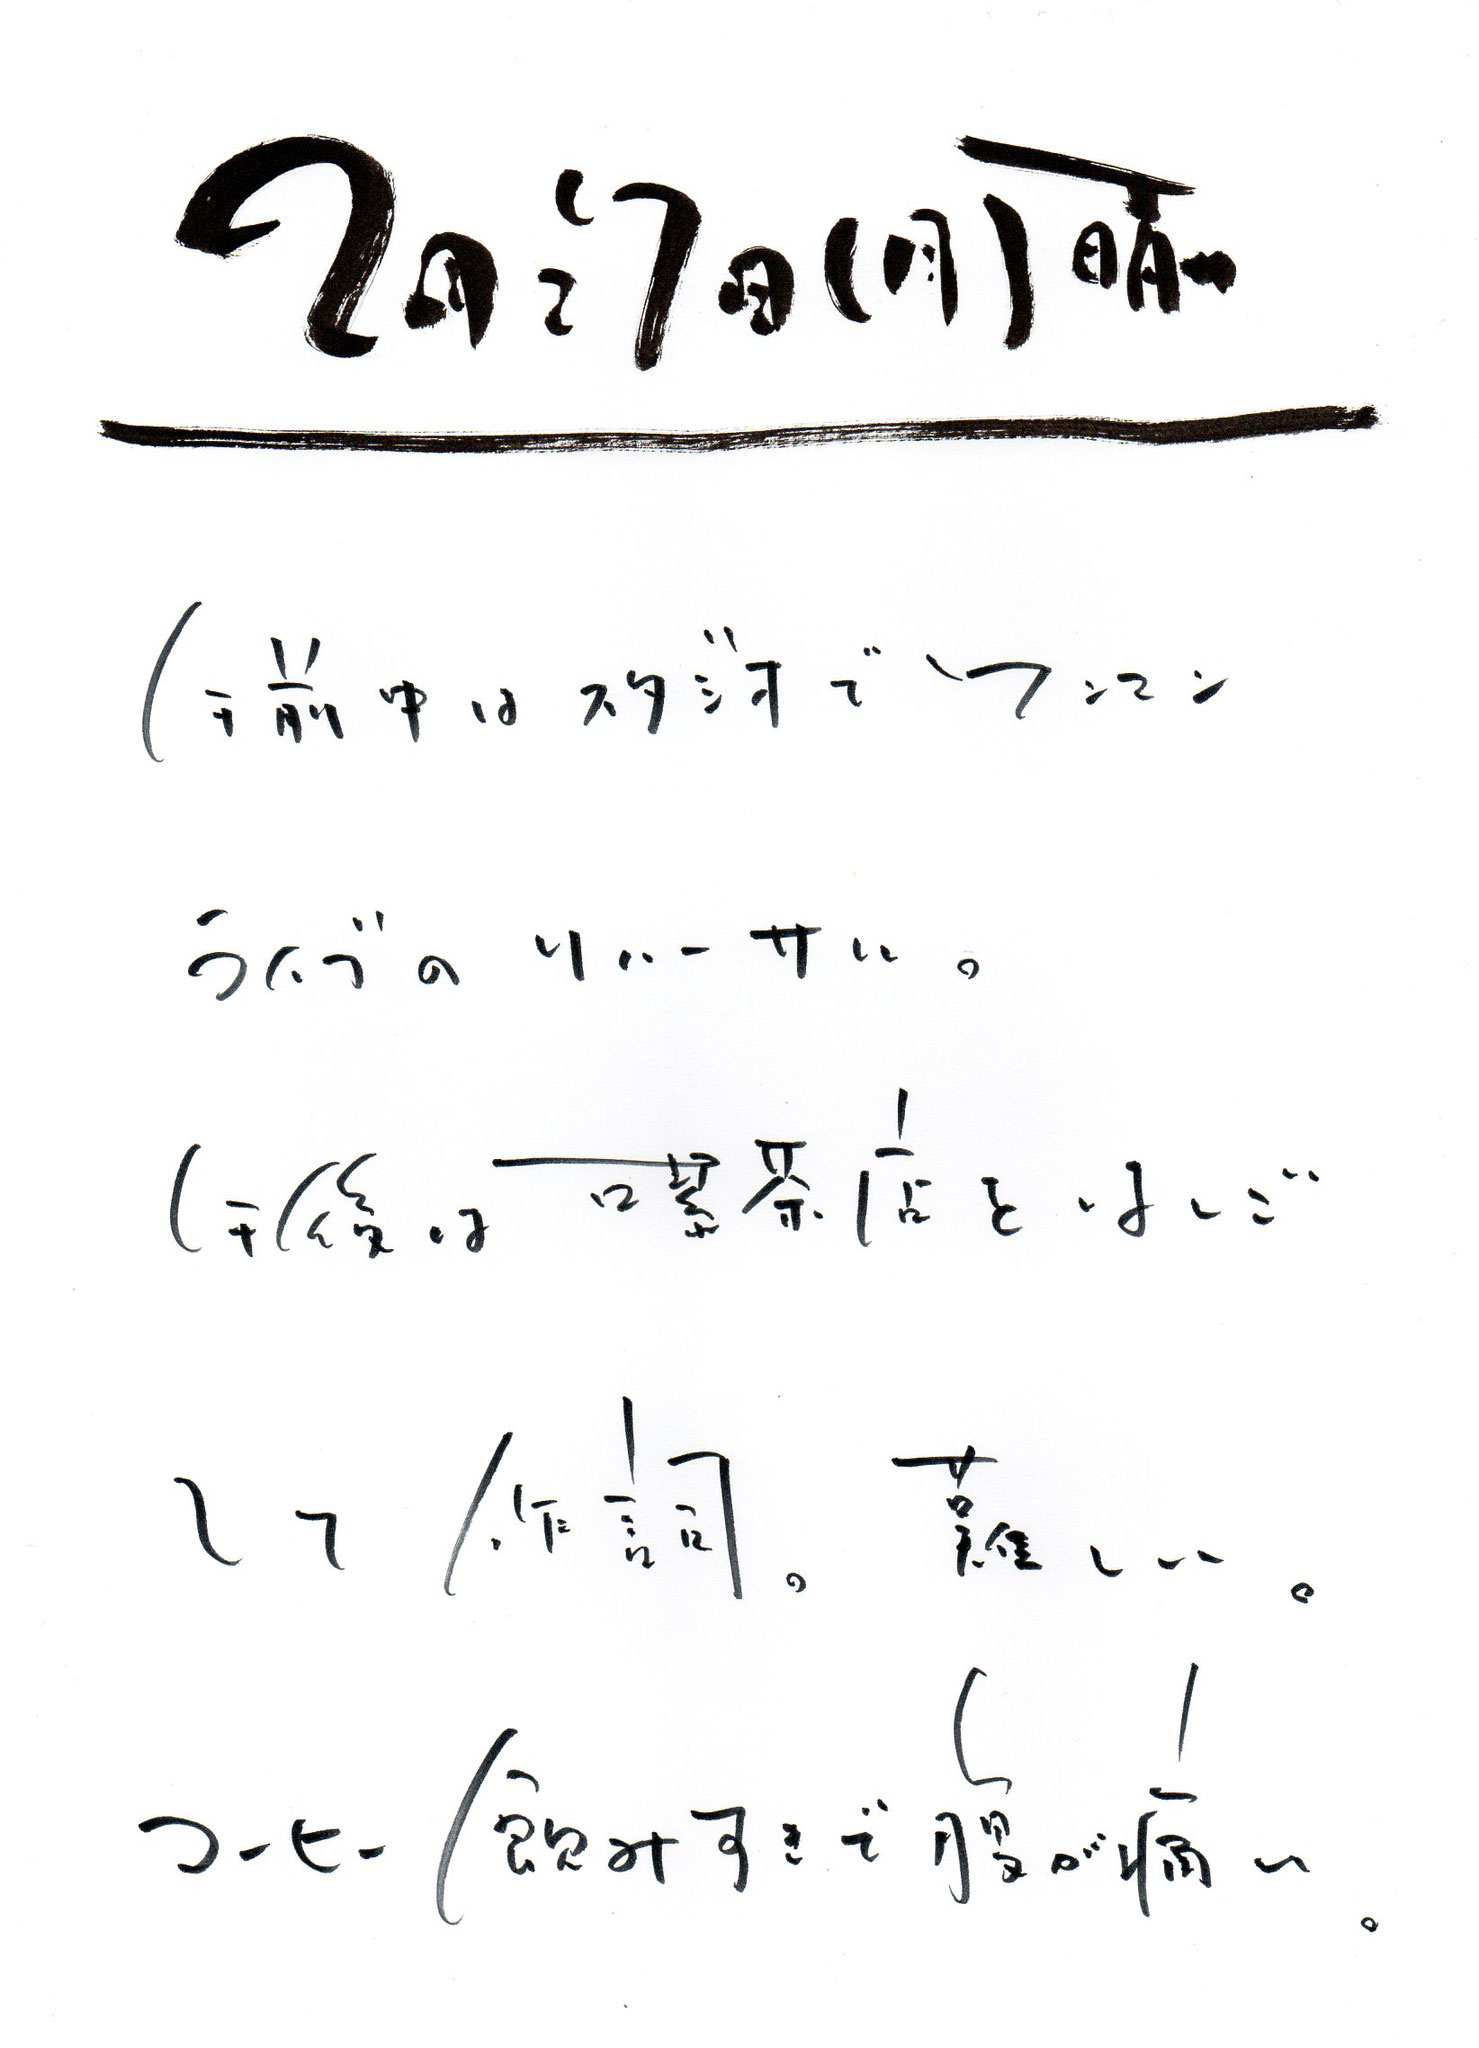 2月27日(月)晴
午前中はスタジオでワンマン
ライブのリハーサル。
午後は喫茶店をはしご
して作詞。難しい。
コーヒー飲みすぎで腹が痛い。